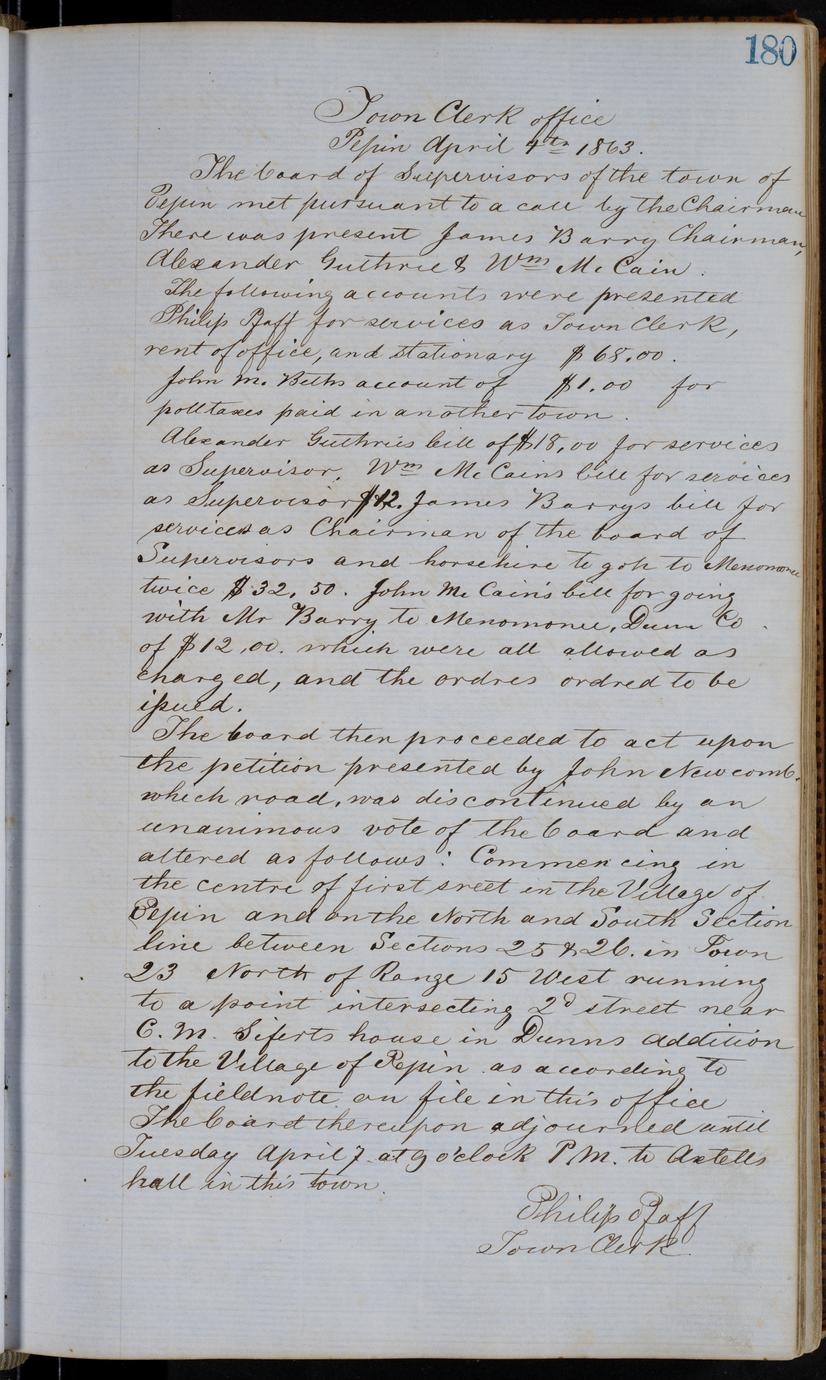 180
Town Clerk office
Pepin April 4th 1863.
The board of Supervisors of the town of
Pepin met pursuant to a call by the Chairman
There was present James Barry Chairman,
Alexander Guthrie & Wm McCain.
The following accounts were presented
Philip Pfaff for services as Town Clerk,
rent of office, and stationary $65.00.
John M. Beths account of $1.00 for
polltaxes paid in another town.
Alexander Guthries bill of $18,00 for services
as Supervisor, Wm McCains bill for services
as Supervisor $12. James Barrys bill for
services as Chairman of the board of
Supervisors and horsehire to goh to Menomonee
twice $32,50. John McCain's bill for going
with Mr Barry to Menomonee, Dunn Co.
of $12,00. which were all allowed as
charged, and the ordres ordred to be
issued.
The board then proceeded to act upon
the petition presented by John Newcomb.
which road, was discontinued by an
unanimous vote of the board and
altered as follows: Commencing in
the centre of first sreet in the Village of
Pepin and on the North and South Section
line between Sections 25 & 26. in Town
23 North of Range 15 West running
to a point intersecting 2d street near
C. M. Siferts house in Dunns addition
to the Village of Pepin as according to
the fieldnote on file in this office
The board thereupon adjourned until
Tuesday April 7 at 9 o'clock P.M. to Axtells
hall in this town.
Philip Pfaff
Town Clerk.